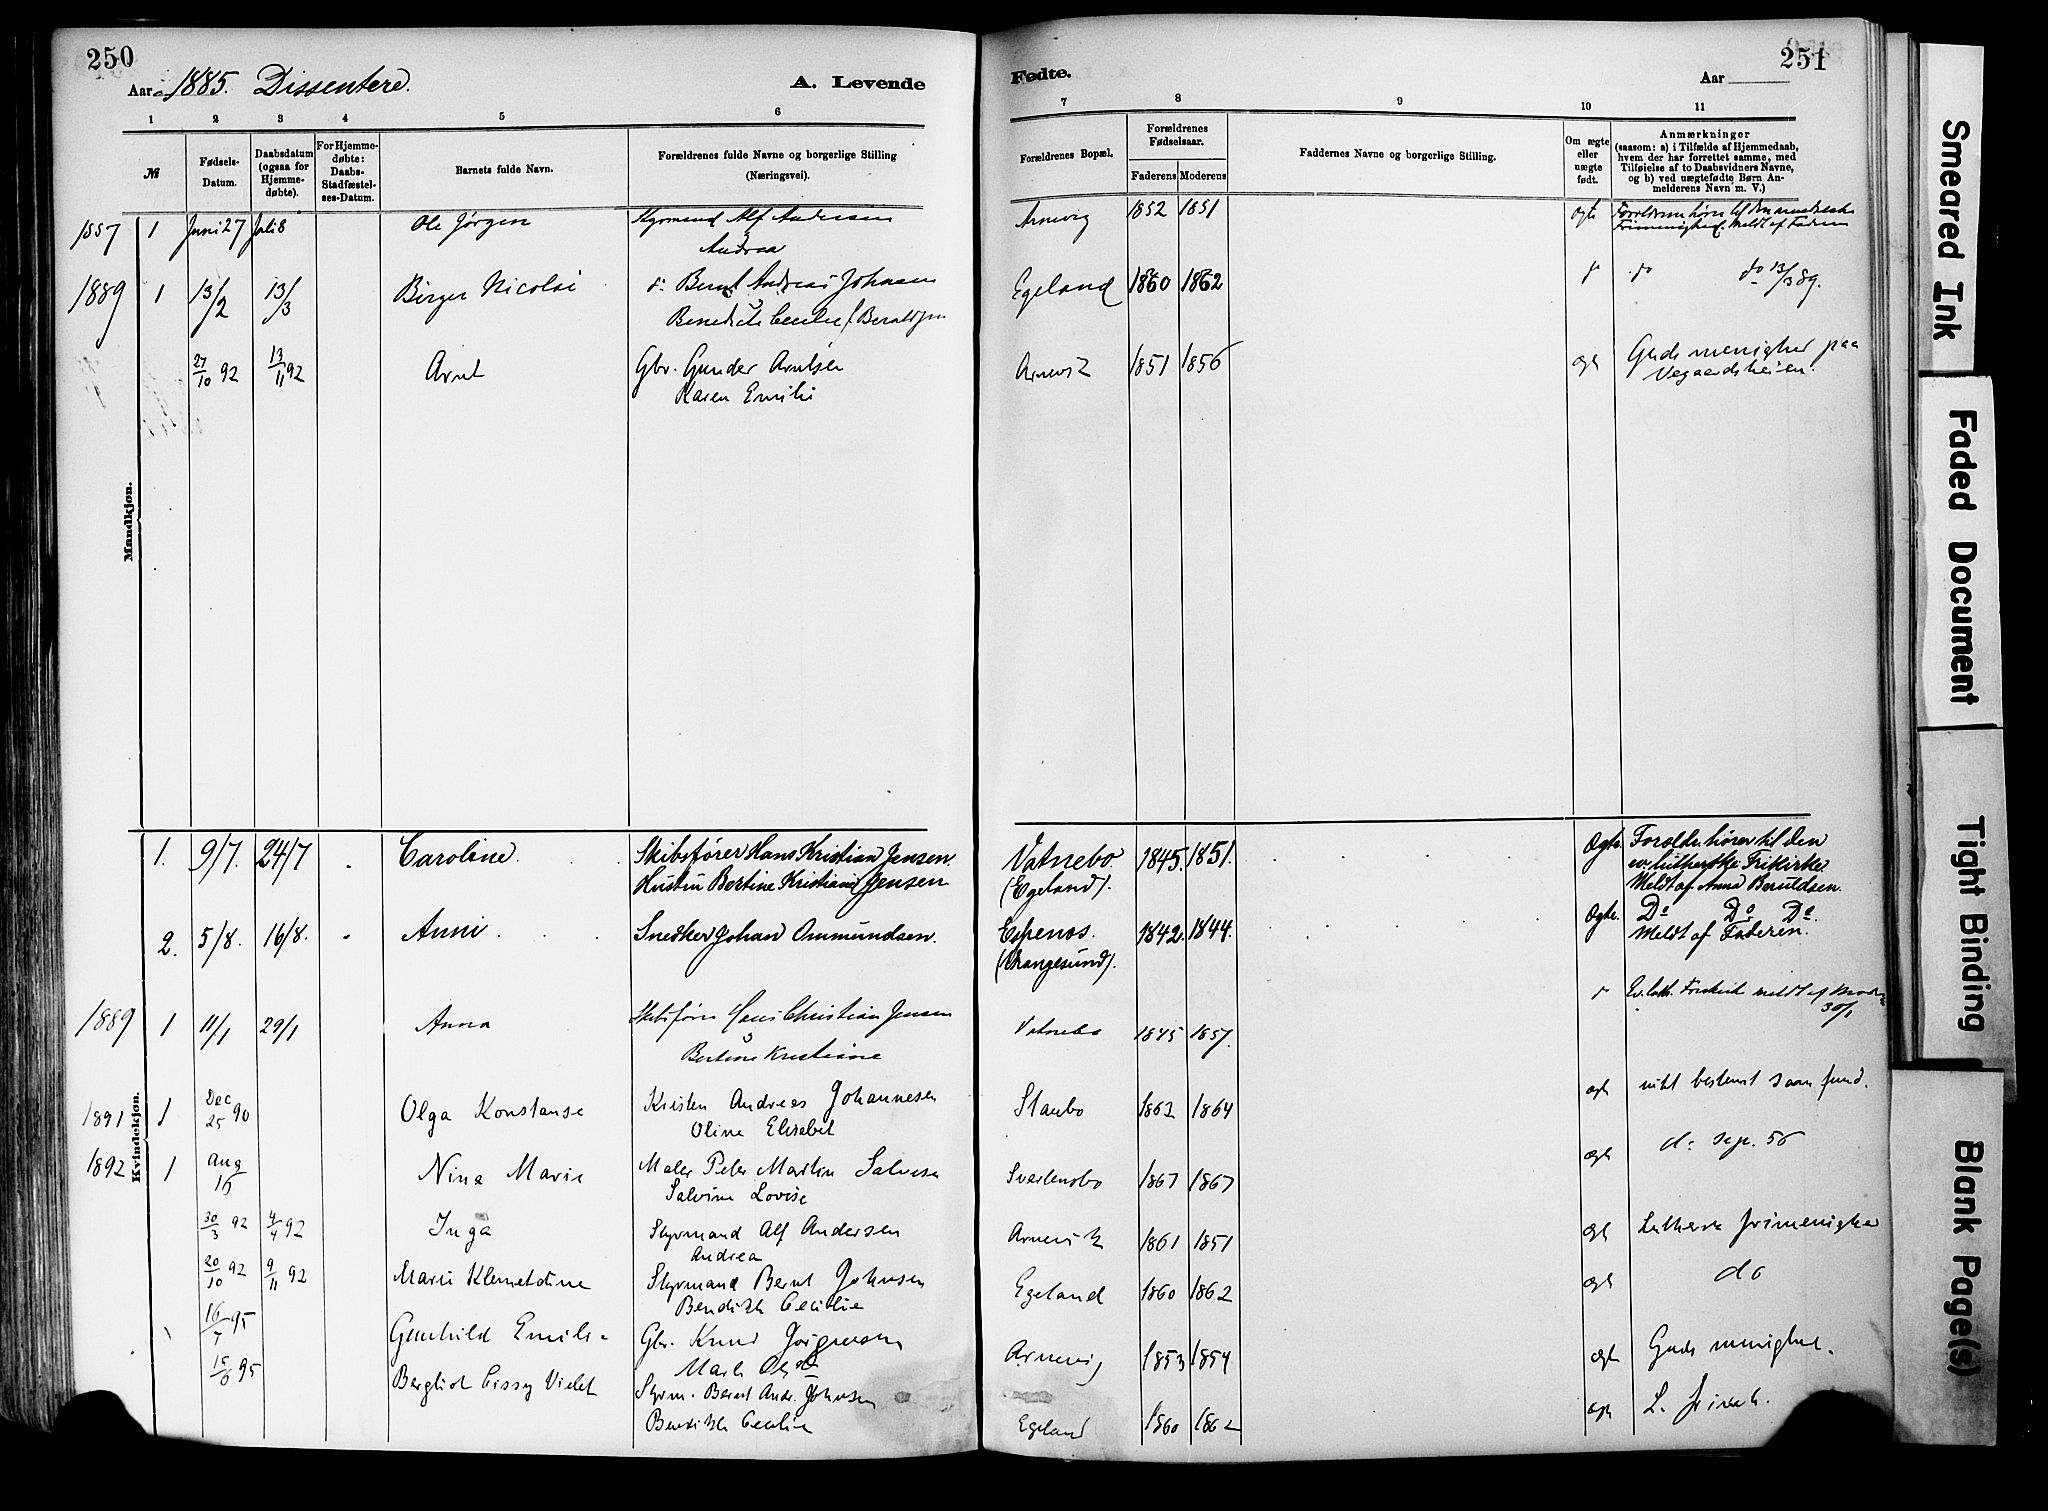 250
Aar 1885. Dissentere.
A. Levende
Fødte.
Aar
251
1 2 3 4 5 6 7 8 9 10 11
№
Fødsels-Datum.
Daabsdatum (ogsaa for Hjemme-døbte).
For Hjemme-døbte: Daabs-Stadfæstel-ses-Datum.
Barnets fulde Navn.
Forældrenes fulde Navne og borgerlige Stilling (Næringsvei).
Forældrenes Bopæl.
Forældrenes Fødselsaar.
Faderens Moderens
Faddernes Navne og borgerlige Stilling.
Om ægte eller uægte født.
Anmærkninger
(saasom: a) i Tilfælde af Hjemmedaab, hvem der har forrettet samme, med Tilføielse af to Daabsvidners Navne, og b) ved uægtefødte Børn An-melderens Navn m. V.)
Mandkjøn.
1887 1 Juni 27 Juli 8 Ole Jørgen Styrmand Alf Andersen Arnevig 1852 1851 ægte
Andrea
1889 1 13/2 13/3 Birger Nicolai do Bernt Andreas Johnsen Egeland 1860 1862 do do 13/3 89.
27/10 92 13/11 92 Arnt Gbr. Gunder Arntsen Arnevik 1851 1856 ægt Guds menighed paa
Karen Emilie Vegaardsheien.
Kvindekjøn.
1. 9/7. 24/7 Caroline. Skibsfører Hans Kristian Jensen. Vatnebo 1845. 1851. Ægte. Forældr. hører til den
Hustru Bertine Kristiane Jensen (Egeland). ev. lutherske Frikirke.
Meldt af Anna Beruldsen.
2. 5/8. 16/8. Anni Snedker Johan Ommundsen. Espenes. 1842. 1844. Ægte. Do Do Do.
(Krangesund). Meldt af Faderen.
1889 1 11/1 29/1 Anna Skibsfører Hans Christian Jensen Vatnebo 1845 1857. Ev. luth. Frikirk meldt af Moder
Bertine Kristiane 30/1
1891 1 Dec 25 90 Olga Konstanse Kristen Andreas Johannesen Staubo 1863 1864 ægt intet bestemt saamfund.
Oline Elisabet
1892 1 Aug 16 Nina Marie Maler Peter Martin Salvesen 1867 1867 ægt
Salvine Lovise
30/3 92 4/4 92 Inga Styrmand Alf Andersen Arnevik 1861 1851 ægt Luthersk frimenighed
Andrea
20/10 92 9/11 92 Marie Klemetdine Styrmand Bernt Johnsen Egeland 1860 1862 ægt do
Bendikte Cecilie
16/7 95 Gunhild Emilie Gbr. Knud Jørgensen Arnevig 1853 1854 ægt Guds menighed.
15/6 95 Bergliot Cissy Violet Styrm. Bernt Andr. Johnsen Egeland 1860 1862 ægt
Bendikte Cecilie
Smeared Ink
Faded Document
Tight Binding
Blank Page(s)